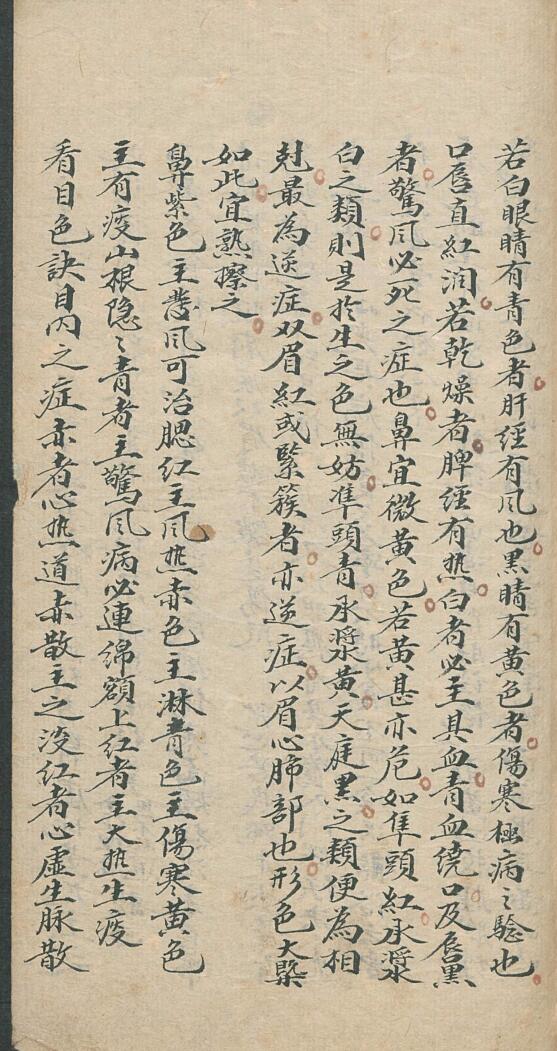 若白眼睛有青色者肝經有风也黒睛有黄色者傷寒極病之驗也
口唇直紅润若乾燥者脾經有热白者必主具血青血繞口及唇黒
者驚风必死之症也鼻宜微黄色若黄甚亦危如隼頭紅承漿
白之類則是於生之色無妨準頭青承漿黄天庭黒之類便為相
尅最為逆症双眉紅或緊簇者亦逆症以眉心肺部也形色大槩
如此宜熟擦之
鼻紫色主驚风可治腮红主风热赤色主淋青色主傷寒黄色
主有疫山根隐之青者主驚风病必連綿額上红者主大热生疫
看目色訣目内之症赤者心热道赤散主之淡红者心虚生脉散